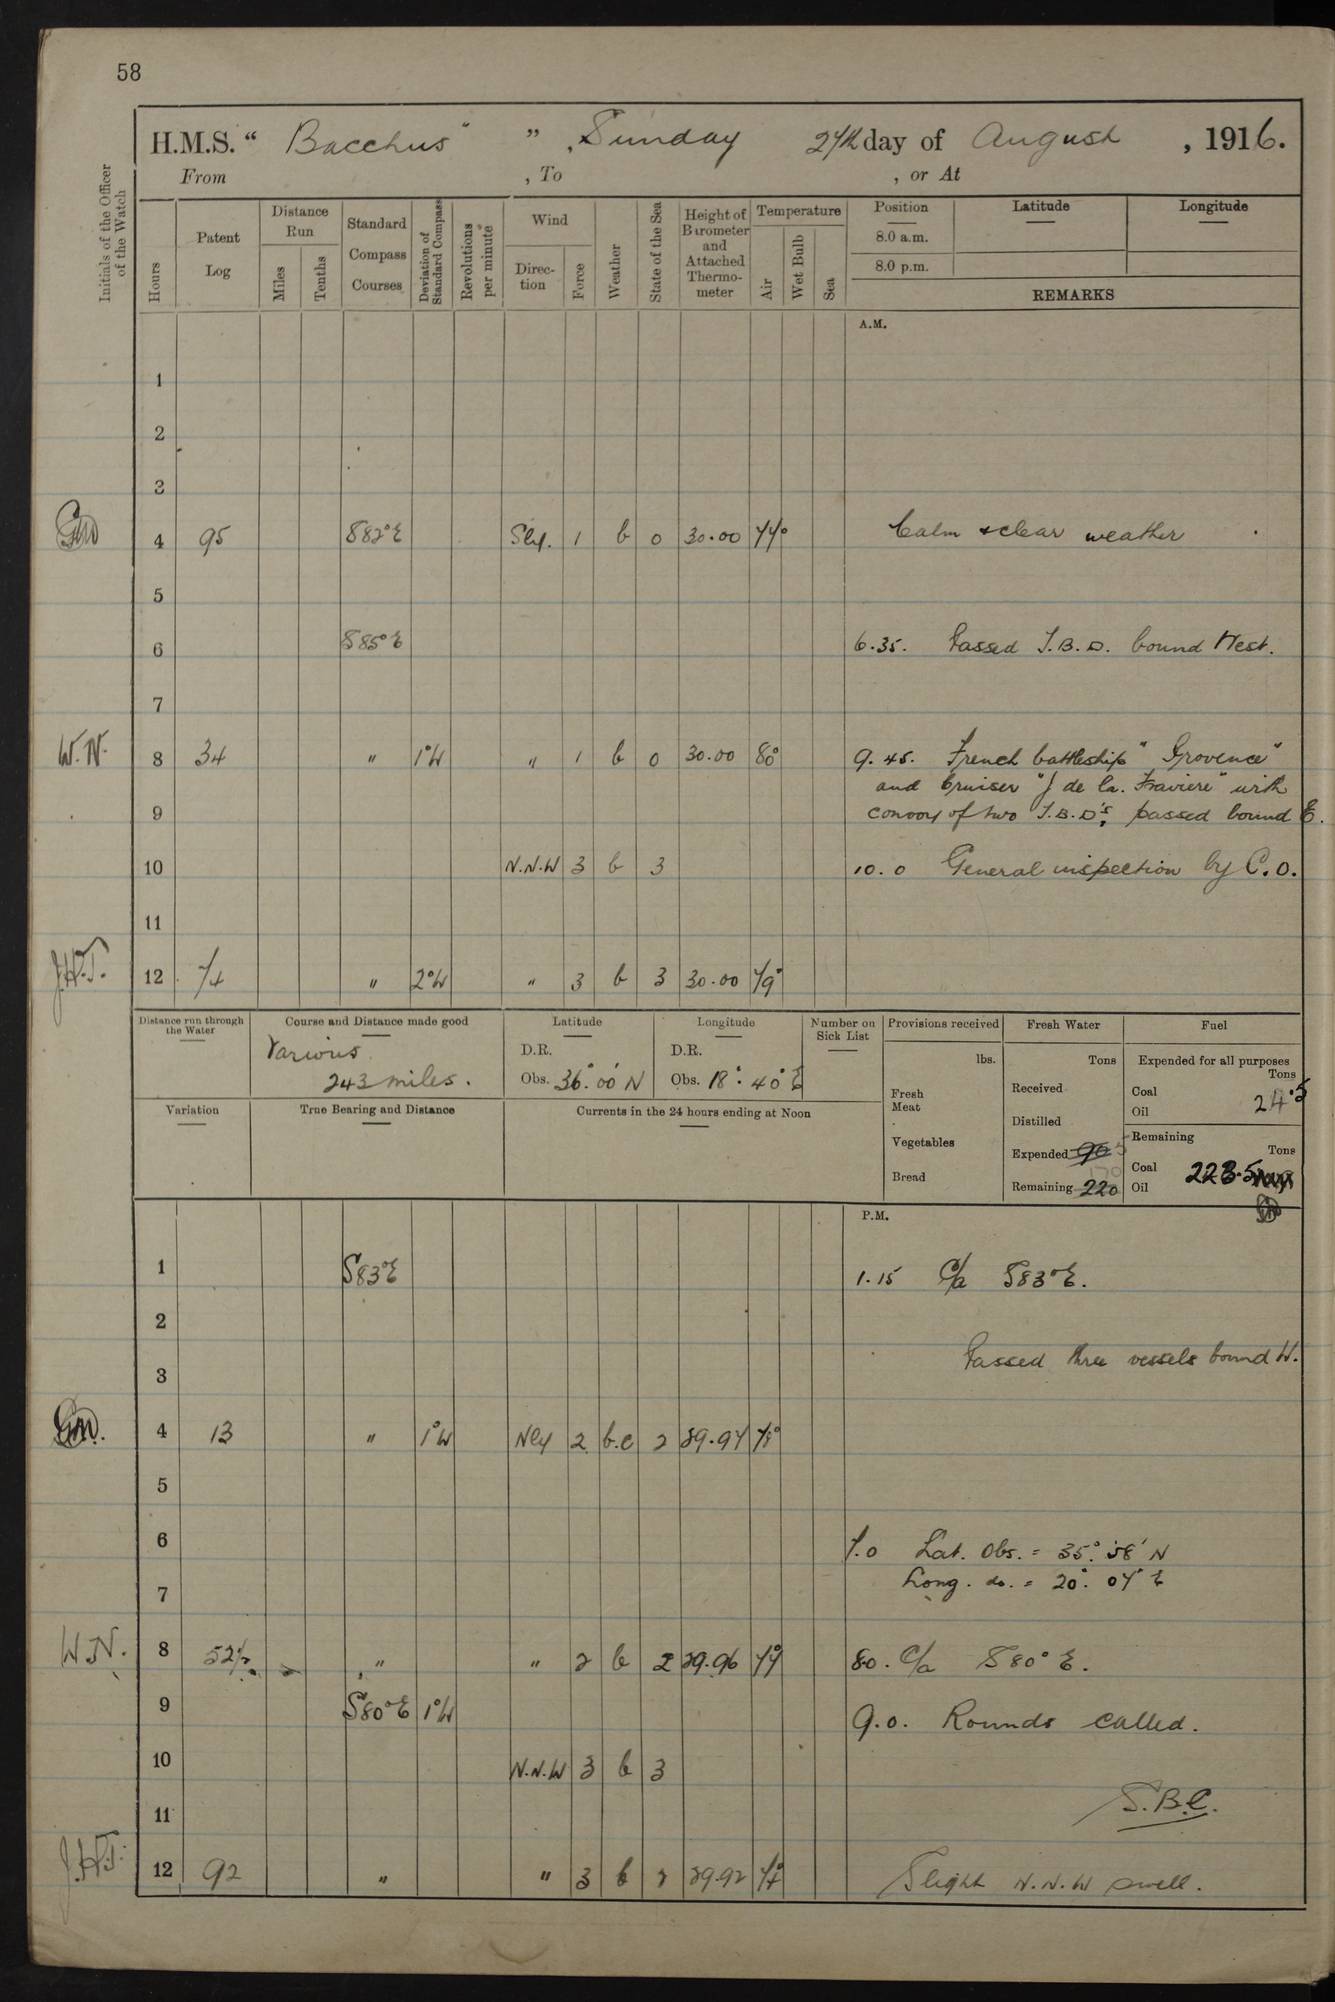 58
H.M.S. “ Bacchus " ” , Sunday 27th day of August , 1916.
From , To , or At
Initials of the Officer of the Watch
Hours
Patent Log
Distance Run
Miles
Tenths
Standard Compass Courses
Deviation of Standard Compass
Revolutions per minute
Wind
Direc-tion
Force
Weather
State of the Sea
Height of Barometer and Attached Thermo-meter
Temperature
Air
Wet Bulb
Sea
Position
8.0 a.m.
8.0 p.m.
Latitude
Longitude
REMARKS
A.M.
1
2
3
4 95 S82°E Sly. 1 b 0 30.00 77° Calm & clear weather
5
6 S85°E 6.35. Passed T.B.D. bound West.
7
W.N. 8 34 " 1°W " 1 b 0 30.00 80° 9.45. French battleship "Provence"
and Cruiser "J de la. Fraviere" with
9 convoy of two T.B.D's, passed bound E.
10 N.N.W 3 b 3 10.0 General inspection by C.O.
11
J.H.T. 12 74 " 2°W " 3 b 3 30.00 79°
Distance run through the Water
Course and Distance made good
Various
243 miles.
Latitude
D.R.
Obs. 36° 00' N
Longitude
D.R.
Obs. 18° 40' E
Number on Sick List
Provisions received
lbs.
Fresh Meat
Vegetables
Bread
Fresh Water
Tons
Received
Distilled
Expended 90 5
170
Remaining 220
Fuel
Expended for all purposes
Tons
Coal 24.5
Oil
Remaining
Tons
Coal 223.5
Oil
Variation
True Bearing and Distance
Currents in the 24 hours ending at Noon
P.M.
1 S83°E 1.15 C/a S83°E.
2
Passed three vessels bound W.
3
4 13 " 1°W Nly 2 b.c 2 29.97 78°
5
6 7.0 Lat. Obs. = 35° 58' N
7 Long. do. = 20° 07' E
W.N. 8 52½ " " 2 b 2 29.96 77° 8.0. C/a S80°E.
9 S80°E 1°W 9.0. Rounds called.
10 N.N.W 3 b 3
S.B.C.
11
J.H.T. 12 92 " " 3 b 2 29.92 77° Slight N.N.W swell.